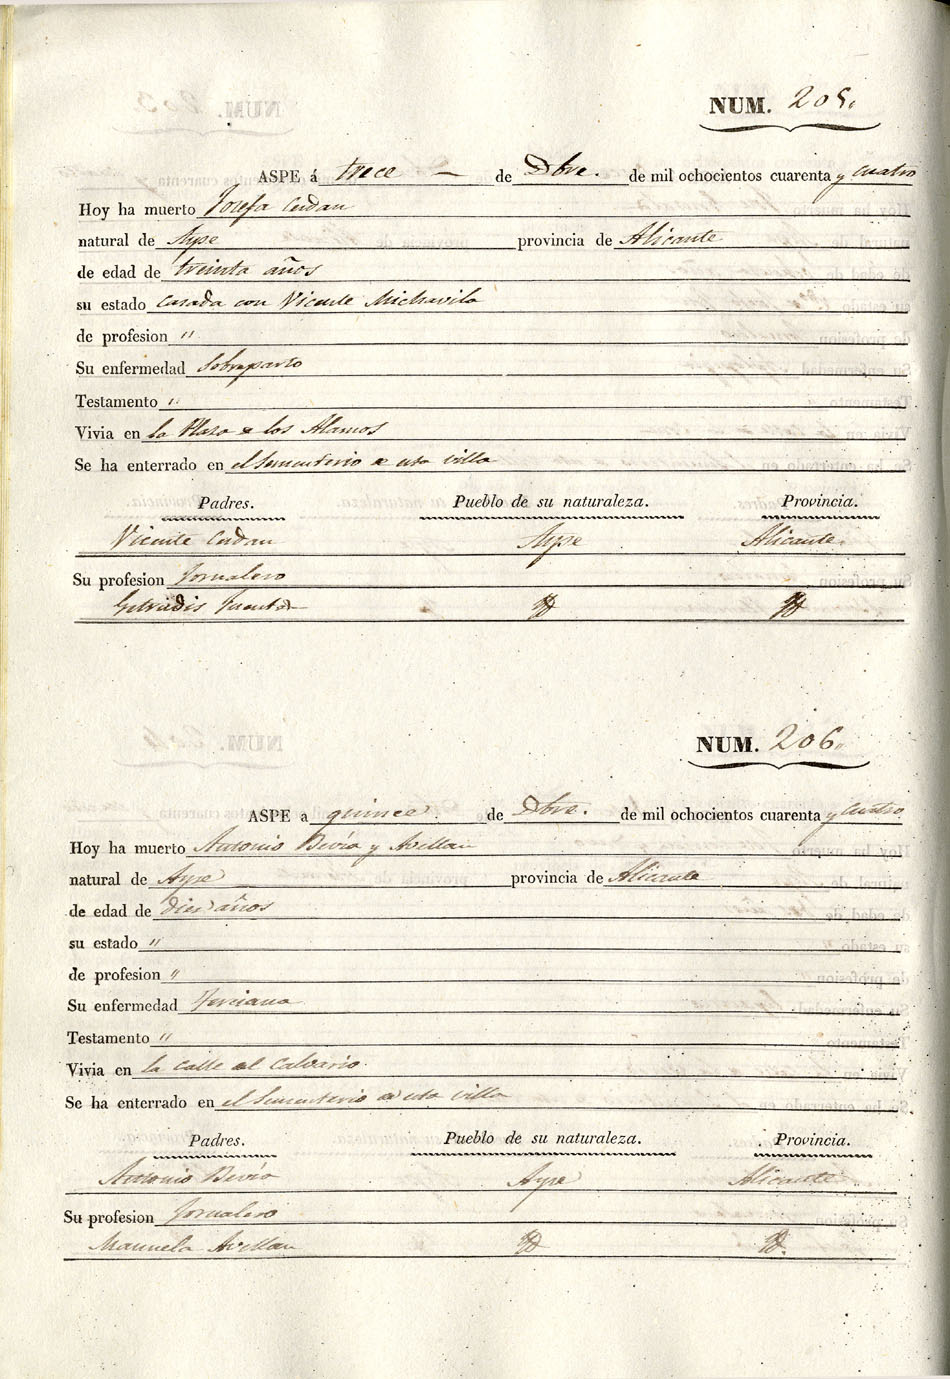 NUM. 205.
ASPE á trece de Dbre. de mil ochocientos cuarenta y cuatro
Hoy ha muerto Josefa Cerdan
natural de Aspe provincia de Alicante
de edad de treinta años
su estado casada con Vicente Michavila
de profesion "
Su enfermedad Sobreparto
Testamento "
Vivia en la Plasa e los Alamos
Se ha enterrado en el Sementerio e esta villa
Padres. Pueblo de su naturaleza. Provincia.
Vicente Cerdan Aspe Alicante
Su profesion Jornalero
NUM. 206.
ASPE a quince de Dbre. de mil ochocientos cuarenta y cuatro
Hoy ha muerto Antonio Bevía y Avellan
natural de Aspe provincia de Alicante
de edad de diez años
su estado "
de profesion "
Su enfermedad Terciana
Testamento "
Vivia en la calle el Calvario
Se ha enterrado en el Sementerio e esta villa
Padres. Pueblo de su naturaleza. Provincia.
Antonio Bevía Aspe Alicante
Su profesion Jornalero
Manuela Avellan